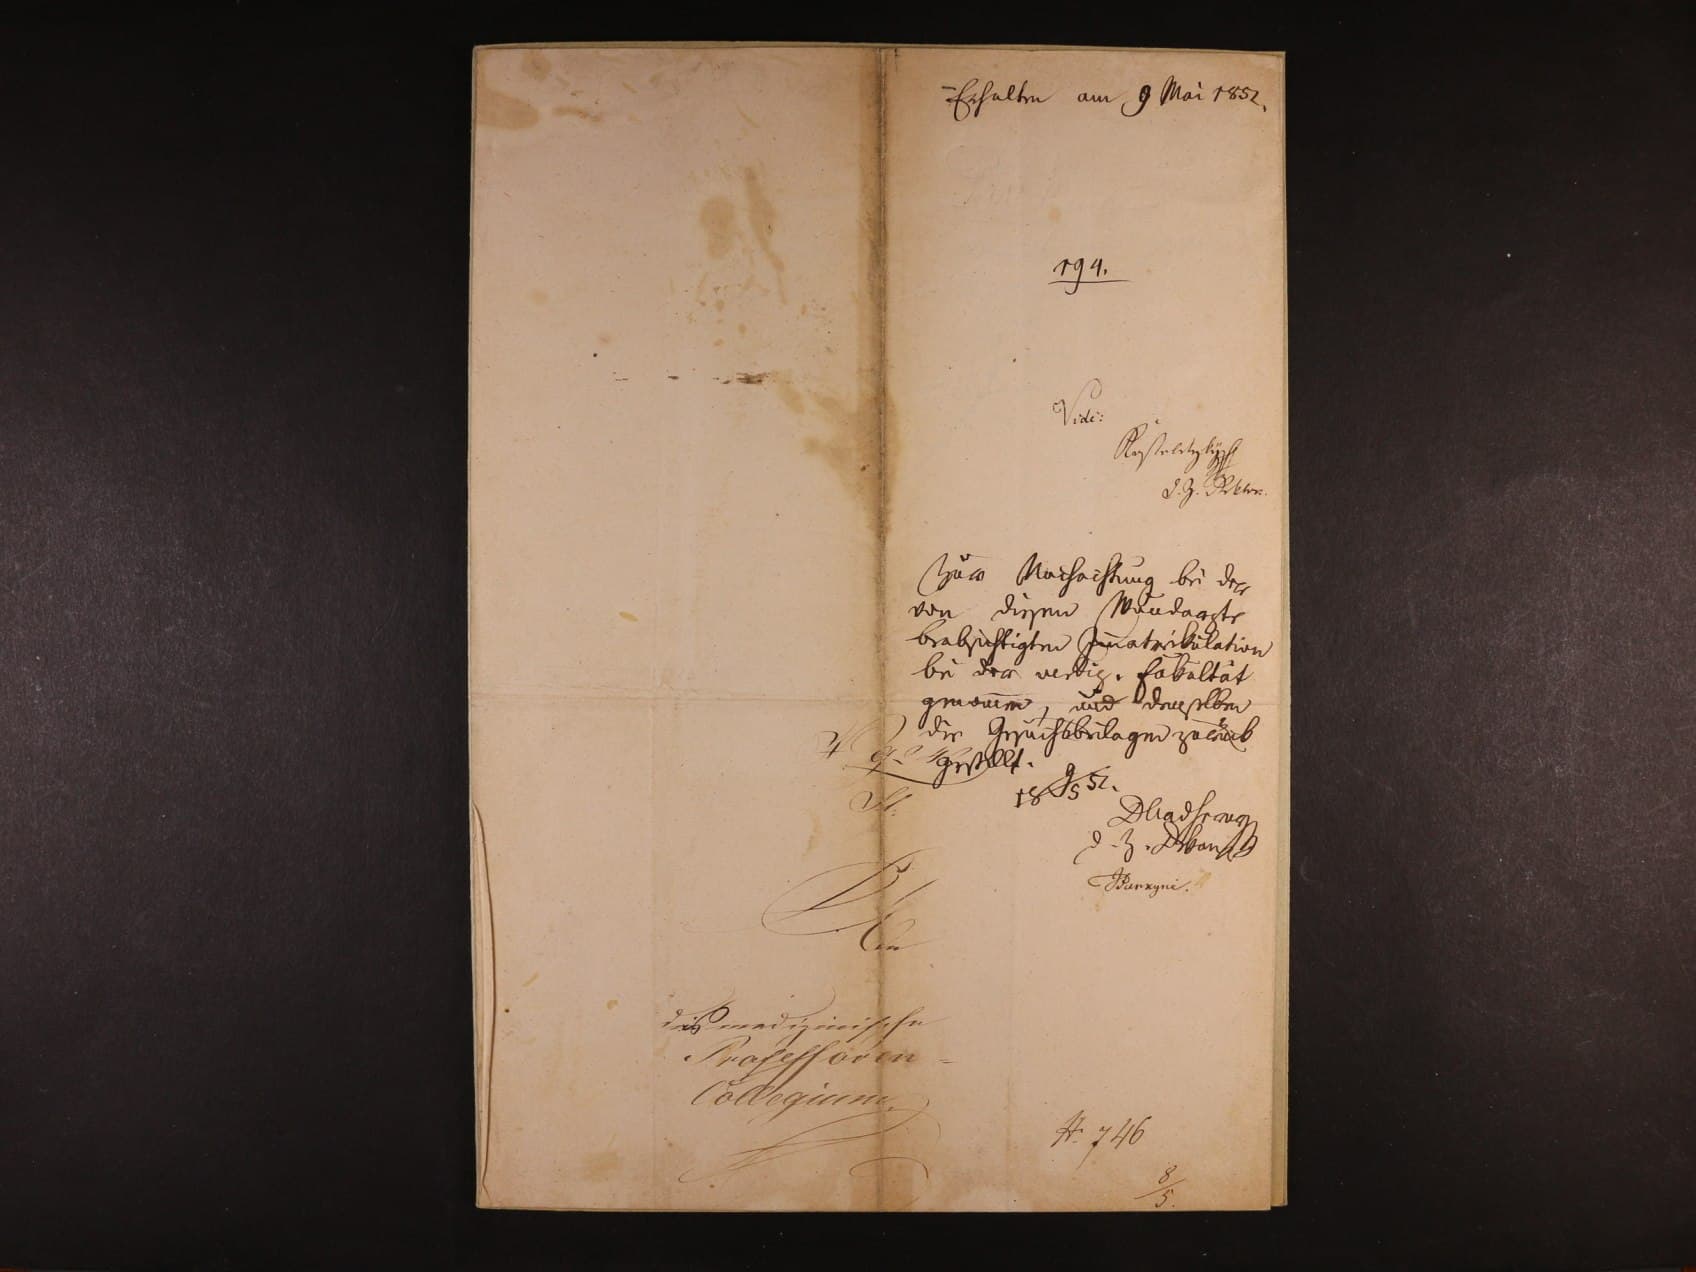 Erhalten am 9 Mai 1852.
194.
Vidi:
Kosteletzky
d. Z. Rektor.
Zur Nachachtung bei der
von diesem Wundarzte
beabsichtigten Immatrikulation
bei der mediz. Fakultät
genommen, und demselben
die Gesuchsbeilagen zurück
gestellt.
18 9/5 52.
d. Z. Dekan
An
das medizinische
Professoren-
Collegium.
N. 746
8/5.